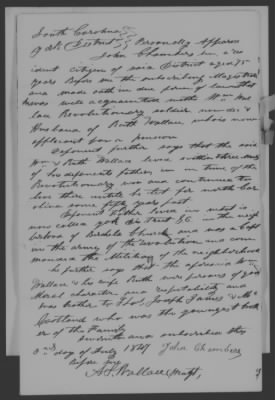 South Carolina
York District } Personally Appears
John Chambers a res
ident citizen of said District aged 75
years Before me the subscribing Magistrate
and made oath in due form of law that
he was well acquainted with Wm Wal
lace Revolutionary soldier and
Husband of Ruth Wallace who is now
applicant for a pension
Deponent further says that the said
Wm & Ruth Wallace lived within three miles
of his deponents father, in time of the
Revolutionary war and continued to
live there untill he left for north Car
olina some fifty years past
Deponent further
called in the neigh
borhood of Bethels Church and was a Capt
in the army of the revolution and com
manded the Militia of the neighborhood
he further says that the aforesaid Wm
Wallace & his wife Ruth were persons of good
Moral character and reputability and
was brother to Joseph James & Mc
Casland who was the youngest broth
er of the Family
Sworn to and subscribed this
3rd day of July 1847 John Chambers
Before me
A. S. Wallace Magst,